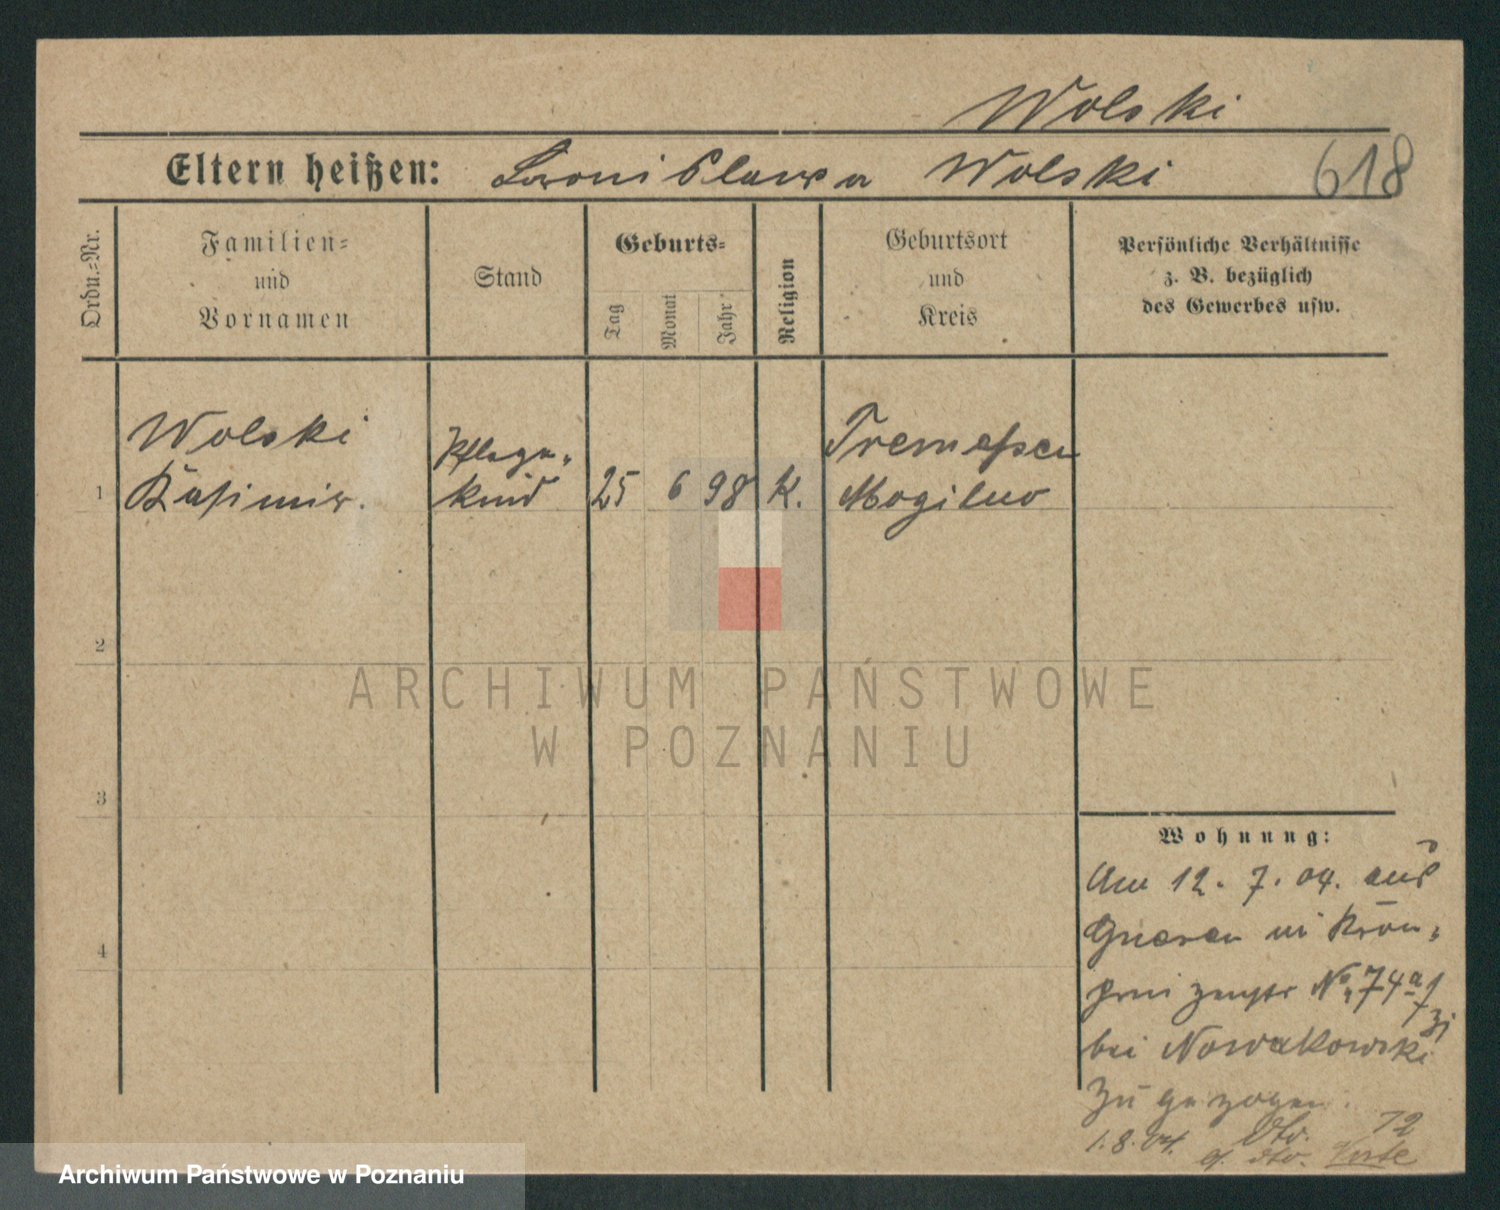 Wolski
Eltern heißen: Bronislawa Wolski 618
Ordn.=Nr.
Familien=
und
Vornamen
Stand
Geburts=
Tag
Monat
Jahr
Religion
Geburtsort
und
Kreis
Persönliche Verhältnisse
z. B. bezüglich
des Gewerbes usw.
1
Wolski
Kasimir.
Pflege-
kind
25 6 98 K.
Tremessen
Mogilno
2
3
4
ARCHIWUM PAŃSTWOWE
W POZNANIU
Wohnung:
Am 12. 7. 04. aus
Gnesen in Kron-
prinzenstr No. 74a
bei Nowakowski
zugezogen.
1.8.04. 72
Archiwum Państwowe w Poznaniu